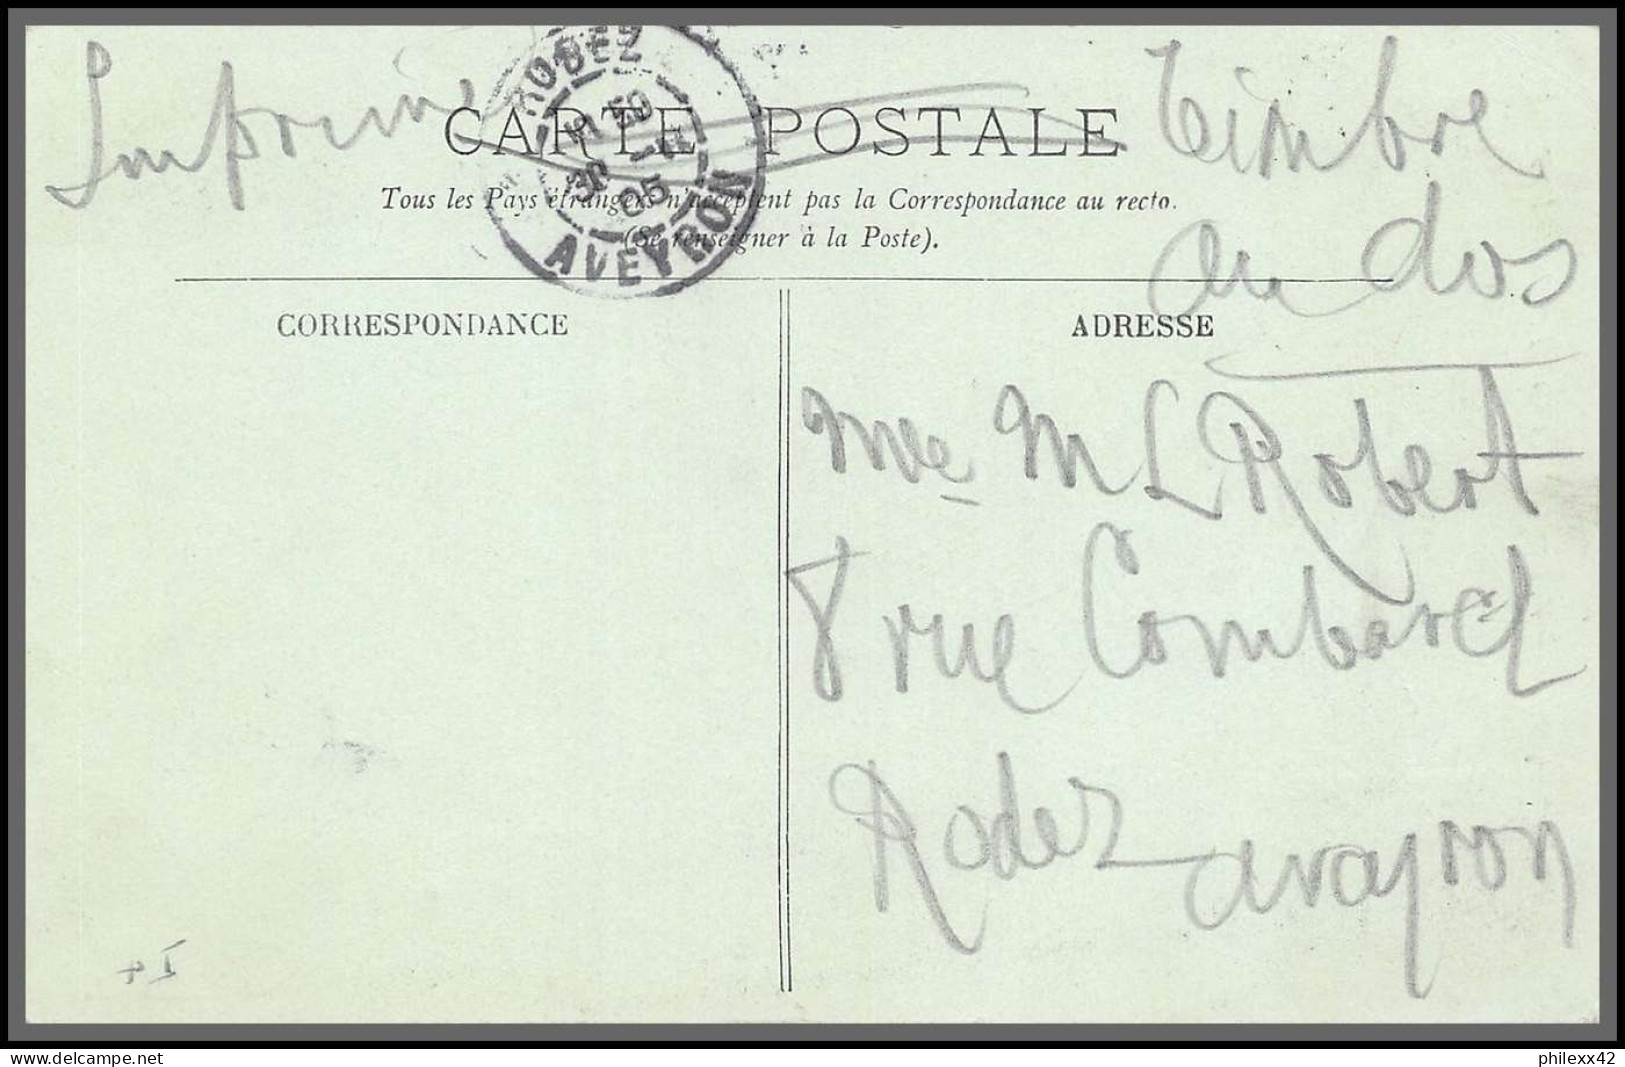 Imprimé
Timbre
au dos
CARTE POSTALE
Tous les Pays étrangers n'acceptent pas la Correspondance au recto.
(Se renseigner à la Poste).
RODEZ
AVEYRON
05
CORRESPONDANCE
ADRESSE
Mme M L Robert
8 rue Combarel
Rodez Avayron
delcampe.net
philexx42